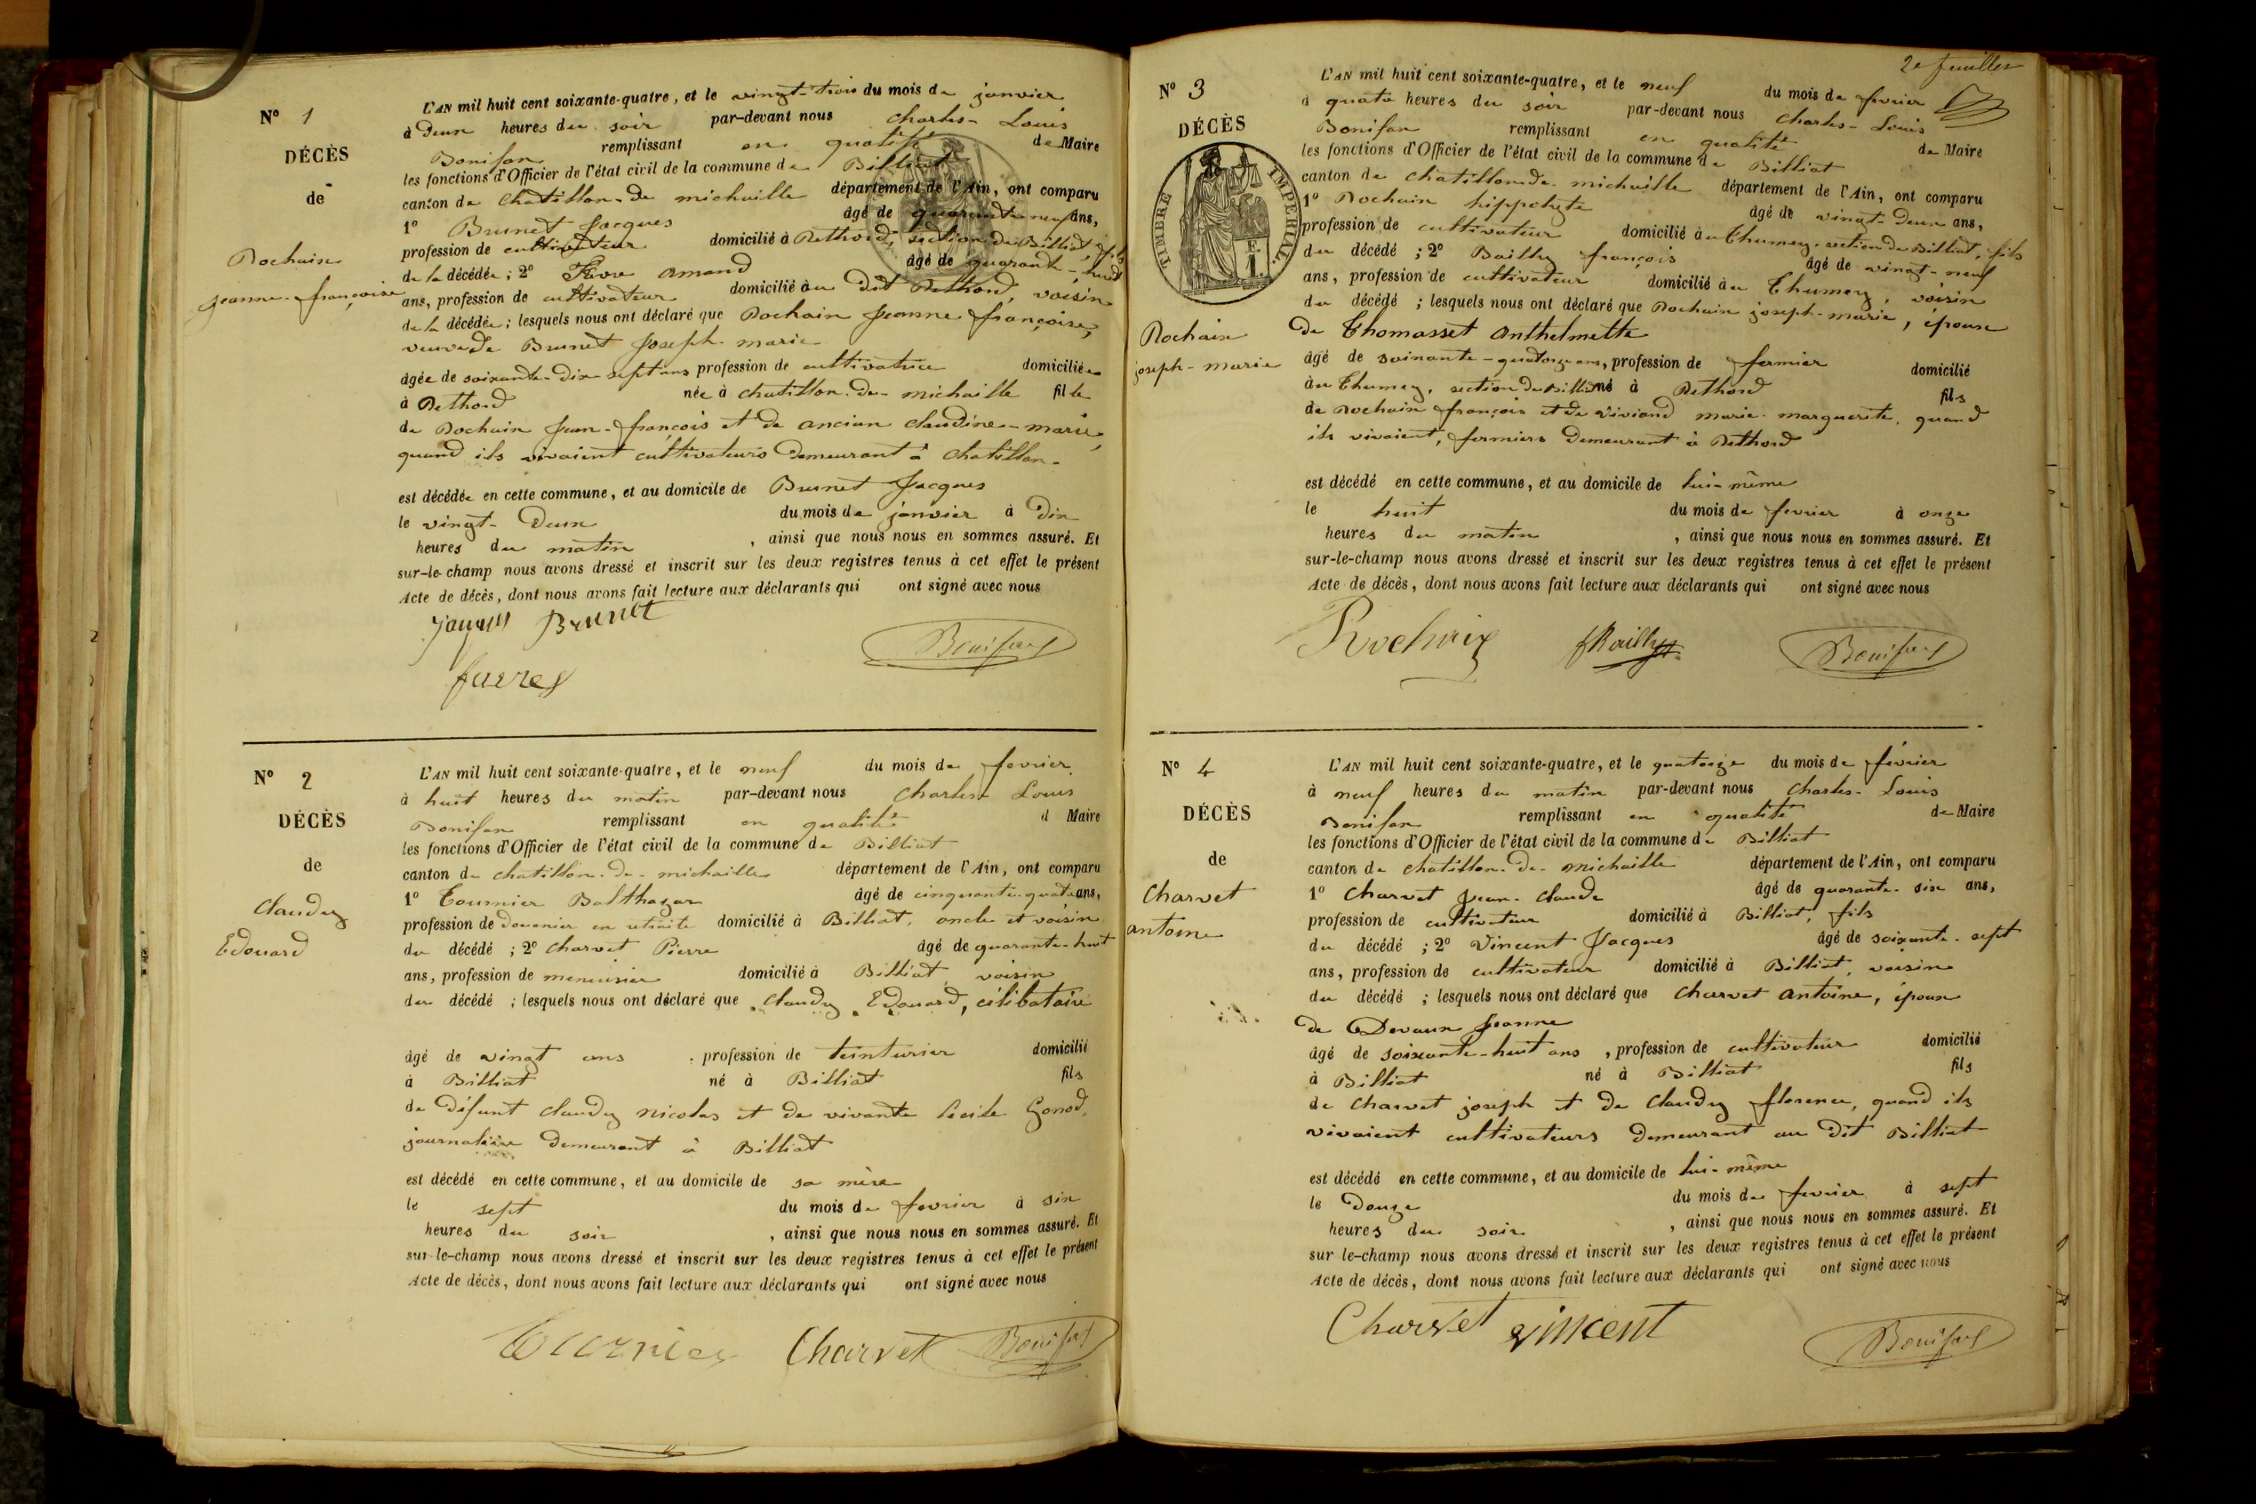 N° 1
DÉCÈS
de
Rochaix
jeanne-françoise
L'AN mil huit cent soixante-quatre, et le vingt-trois du mois de janvier
à deux heures du soir par-devant nous Charles-Louis
Bonifax remplissant en qualité de Maire
les fonctions d'Officier de l'état civil de la commune de Billiat
canton de Chatillon-de-michaille département de l'Ain, ont comparu
1° Brunet Jacques âgé de quarante-neuf ans,
profession de cultivateur domicilié à Rethord, section de Billiat, fils
de la décédée ; 2° Favre amand âgé de quarante-huit
ans, profession de cultivateur domicilié au dit Rethord, voisin
de la décédée ; lesquels nous ont déclaré que Rochaix jeanne françoise,
veuve de Brunet Joseph-marie
âgée de soixante-dix-sept ans profession de cultivatrice domiciliée
à Rethord née à chatillon-de-michaille fille
de Rochaix Jean-françois et de ancian claudine-marie,
quand ils vivaient cultivateurs demeurant à chatillon-
est décédée en cette commune, et au domicile de Brunet Jacques
le vingt-deux du mois de janvier à dix
heures du matin , ainsi que nous nous en sommes assuré. Et
sur-le-champ nous avons dressé et inscrit sur les deux registres tenus à cet effet le présent
Acte de décès, dont nous avons fait lecture aux déclarants qui ont signé avec nous
Brunet
Bonifax
favre
N° 2
DÉCÈS
de
Claudy
Edouard
L'AN mil huit cent soixante-quatre, et le neuf du mois de fevrier
à huit heures du matin par-devant nous Charles Louis
Bonifax remplissant en qualité d Maire
les fonctions d'Officier de l'état civil de la commune de Billiat
canton de chatillon-de-michaille département de l'Ain, ont comparu
1° Tournier Balthazar âgé de cinquante-quatre ans,
profession de douanier en retraite domicilié à Billiat, oncle et voisin
du décédé ; 2° Charvet Pierre âgé de quarante-huit
ans, profession de menuisier domicilié à Billiat, voisin
du décédé ; lesquels nous ont déclaré que Claudy Edouard, célibataire
âgé de vingt ans , profession de teinturier domicilié
à Billiat né à Billiat fils
de défunt claudy nicolas et de vivante Cecile Gonod,
journalière demeurant à Billiat
est décédé en cette commune, et au domicile de sa mère
le sept du mois de fevrier à six
heures du soir , ainsi que nous nous en sommes assuré. Et
sur-le-champ nous avons dressé et inscrit sur les deux registres tenus à cet effet le présent
Acte de décès, dont nous avons fait lecture aux déclarants qui ont signé avec nous
Tournier Charvet Bonifax
2e feuillet
N° 3
DÉCÈS
TIMBRE IMPÉRIAL
Rochaix
joseph-marie
L'AN mil huit cent soixante-quatre, et le neuf du mois de fevrier
à quatre heures du soir par-devant nous Charles-Louis
Bonifax remplissant en qualité de Maire
les fonctions d'Officier de l'état civil de la commune de Billiat
canton de chatillon-de-michaille département de l'Ain, ont comparu
1° Rochaix hippolyte âgé de vingt-deux ans,
profession de cultivateur domicilié au Thumey, section de Billiat, fils
du décédé ; 2° Bailly françois âgé de vingt-neuf
ans, profession de cultivateur domicilié au Thumey, voisin
du décédé ; lesquels nous ont déclaré que Rochaix joseph-marie, époux
de Thomasset Anthelmette
âgé de soixante-quatorze ans, profession de fermier domicilié
au Thumey, section de Billiat né à Rethord fils
de Rochaix françois et de Viviand marie-marguerite, quand
ils vivaient, fermiers demeurant à Rethord
est décédé en cette commune, et au domicile de lui-même
le huit du mois de fevrier à onze
heures du matin , ainsi que nous nous en sommes assuré. Et
sur-le-champ nous avons dressé et inscrit sur les deux registres tenus à cet effet le présent
Acte de décès, dont nous avons fait lecture aux déclarants qui ont signé avec nous
Rochaix fBailly Bonifax
N° 4
DÉCÈS
de
Charvet
antoine
L'AN mil huit cent soixante-quatre, et le quatorze du mois de février
à neuf heures du matin par-devant nous Charles-Louis
Bonifax remplissant en qualité de Maire
les fonctions d'Officier de l'état civil de la commune de Billiat
canton de chatillon-de-michaille département de l'Ain, ont comparu
1° Charvet Jean-claude âgé de quarante-six ans,
profession de cultivateur domicilié à Billiat, fils
du décédé ; 2° Vincent Jacques âgé de soixante-sept
ans, profession de cultivateur domicilié à Billiat, voisin
du décédé ; lesquels nous ont déclaré que Charvet antoine, époux
de Devaux Jeanne
âgé de soixante-huit ans , profession de cultivateur domicilié
à Billiat né à Billiat fils
de Charvet joseph et de Claudy florence, quand ils
vivaient cultivateurs demeurant au dit Billiat
est décédé en cette commune, et au domicile de lui-même
le douze du mois de fevrier à sept
heures du soir , ainsi que nous nous en sommes assuré. Et
sur le-champ nous avons dressé et inscrit sur les deux registres tenus à cet effet le présent
Acte de décès, dont nous avons fait lecture aux déclarants qui ont signé avec nous
Charvet vincent Bonifax